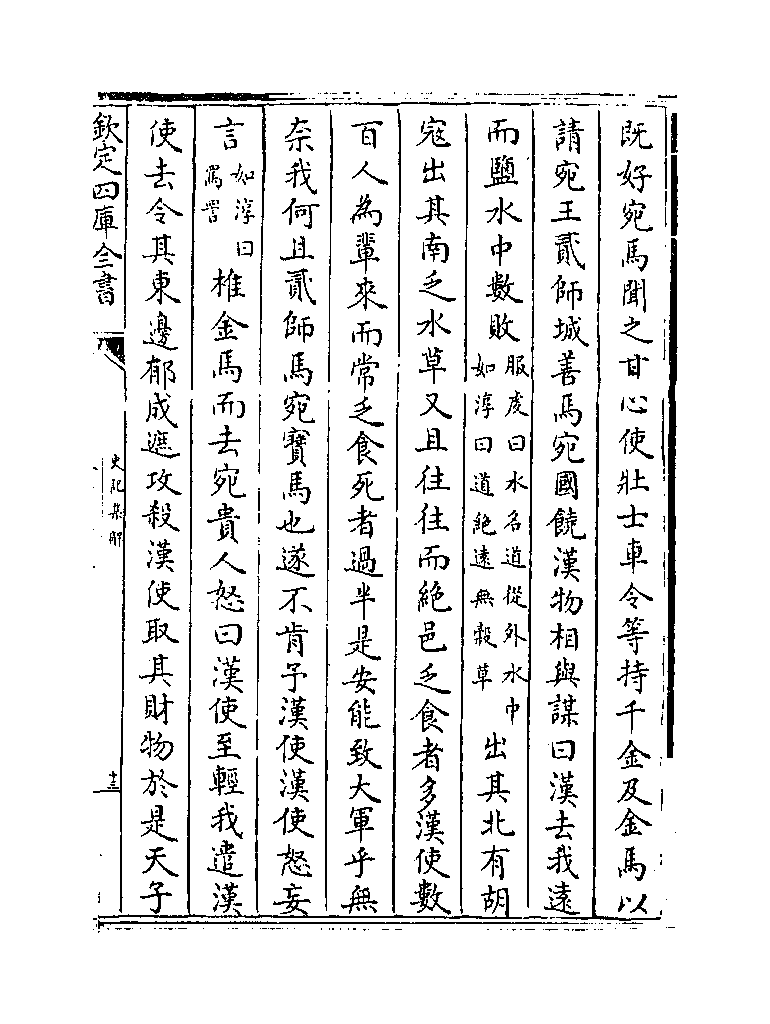 既好宛馬聞之甘心使壯士車令等持千金及金馬以
請宛王貳師城善馬宛國饒漢物相與謀曰漢去我遠
而鹽水中數敗服䖍曰水名道從外水中
如淳曰道絶遠無穀草出其北有胡
寇出其南乏水草又且往往而絶邑乏食者多漢使數
百人為輩來而常乏食死者過半是安能致大軍乎無
奈我何且貳師馬宛寳馬也遂不肯予漢使漢使怒妄
言如淳曰
罵詈椎金馬而去宛貴人怒曰漢使至輕我遣漢
使去令其東邊郁成遮攻殺漢使取其財物於是天子
欽定四庫全書
史記集解
十三